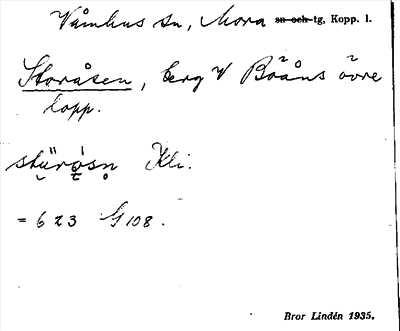 Våmhus sn, Mora sn och tg, Kopp. l.
Storåsen, berg V Bååns övre
lopp.
Kli.
= 623 G 108.
Bror Lindén 1935.